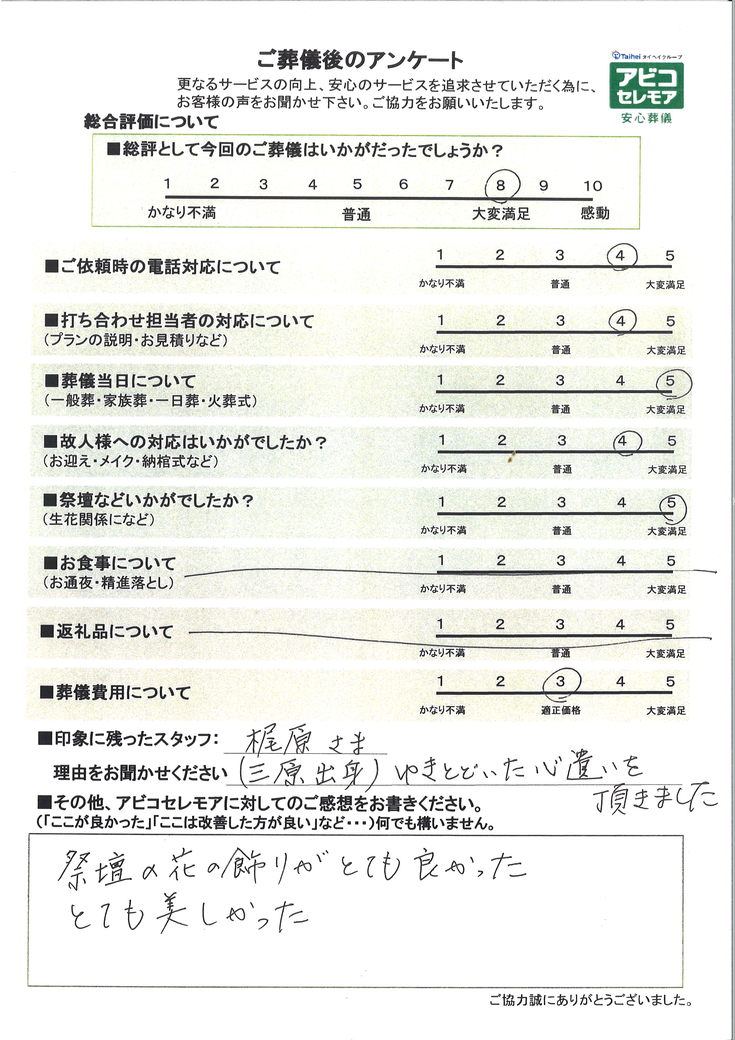 ご葬儀後のアンケート
Taihei タイヘイグループ
アビコ
セレモア
安心葬儀
更なるサービスの向上、安心のサービスを追求させていただく為に、
お客様の声をお聞かせ下さい。ご協力をお願いいたします。
総合評価について
■総評として今回のご葬儀はいかがだったでしょうか？
1 2 3 4 5 6 7 8 9 10
かなり不満 普通 大変満足 感動
■ご依頼時の電話対応について
1 2 3 4 5
かなり不満 普通 大変満足
■打ち合わせ担当者の対応について
(プランの説明・お見積りなど)
1 2 3 4 5
かなり不満 普通 大変満足
■葬儀当日について
(一般葬・家族葬・一日葬・火葬式)
1 2 3 4 5
かなり不満 普通 大変満足
■故人様への対応はいかがでしたか？
(お迎え・メイク・納棺式など)
1 2 3 4 5
かなり不満 普通 大変満足
■祭壇などいかがでしたか？
(生花関係になど)
1 2 3 4 5
かなり不満 普通 大変満足
■お食事について
(お通夜・精進落とし)
1 2 3 4 5
かなり不満 普通 大変満足
■返礼品について
1 2 3 4 5
かなり不満 普通 大変満足
■葬儀費用について
1 2 3 4 5
かなり不満 適正価格 大変満足
■印象に残ったスタッフ： 梶原さま
理由をお聞かせください (三原出身) ゆきとどいた心遣いを
頂きました
■その他、アビコセレモアに対してのご感想をお書きください。
(「ここが良かった」「ここは改善した方が良い」など・・・)何でも構いません。
祭壇の花の飾りがとても良かった
とても美しかった
ご協力誠にありがとうございました。